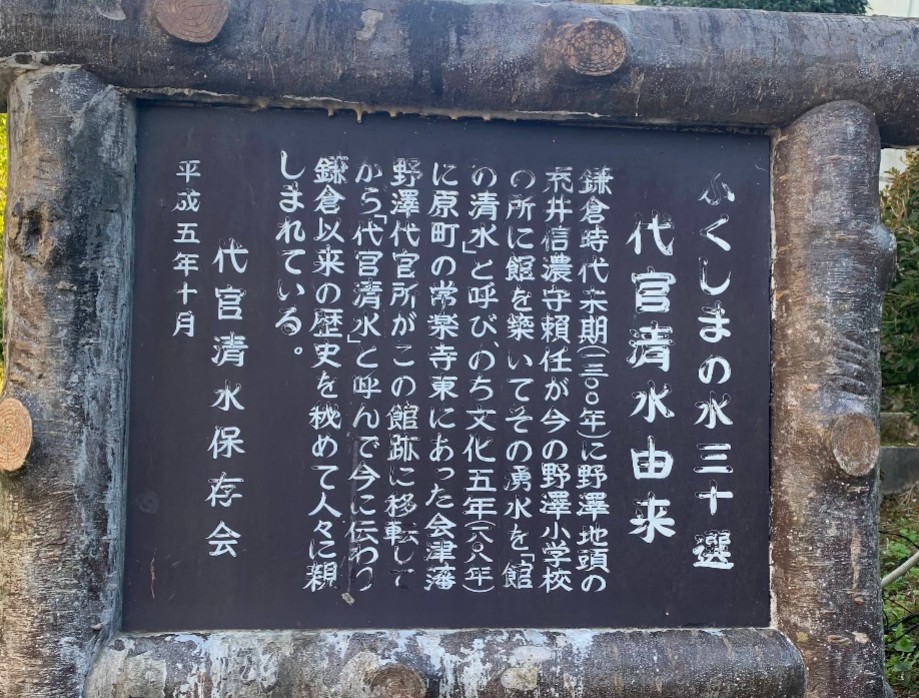 ふくしまの水三十選
代官清水由来
鎌倉時代末期(一三〇〇年)に野澤地頭の
荒井信濃守頼任が今の野澤小学校
の所に館を築いてその湧水を「館
の清水」と呼び、のち文化五年(一八〇八年)
に原町の常楽寺東にあった会津藩
野澤代官所がこの館跡に移転して
から「代官清水」と呼んで今に伝わり
鎌倉以来の歴史を秘めて人々に親
しまれている。
代官清水保存会
平成五年十月